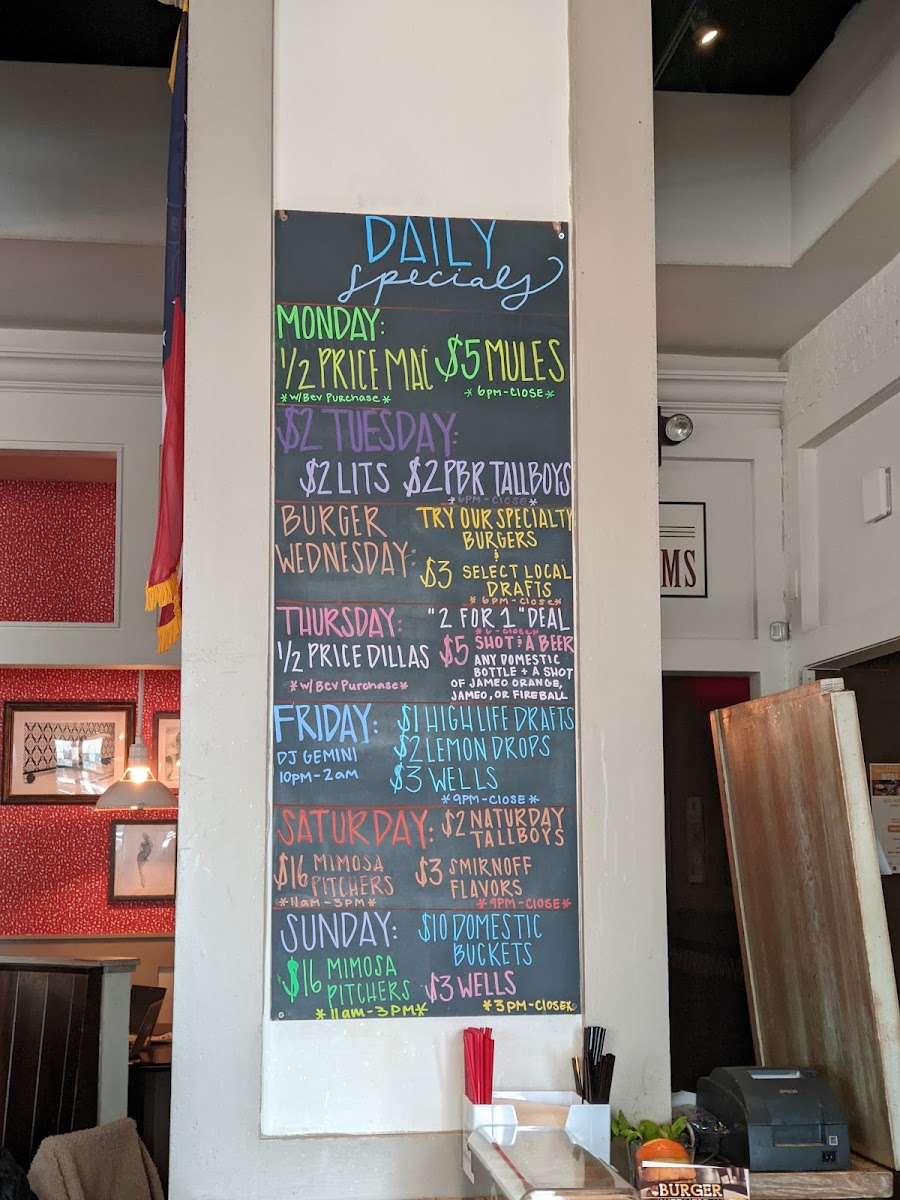 DAILY
specials
MONDAY:
1/2 PRICE MAC
*w/Bev Purchase*
$5 MULES
*6pm-CLOSE*
$2 TUESDAY:
$2 LITS
$2 PBR TALLBOYS
*6PM-CLOSE*
BURGER
WEDNESDAY:
TRY OUR SPECIALTY
BURGERS
&
$3 SELECT LOCAL
DRAFTS
*6PM-CLOSE*
THURSDAY:
1/2 PRICE DILLAS
*w/Bev Purchase*
"2 FOR 1" DEAL
*6-CLOSE*
$5 SHOT & A BEER
ANY DOMESTIC
BOTTLE + A SHOT
OF JAMEO ORANGE,
JAMEO, OR FIREBALL
FRIDAY:
DJ GEMINI
10PM-2AM
$1 HIGH LIFE DRAFTS
$2 LEMON DROPS
$3 WELLS
*9PM-CLOSE*
SATURDAY:
$16 MIMOSA
PITCHERS
*11am-3PM*
$2 NATURDAY
TALLBOYS
$3 SMIRNOFF
FLAVORS
*9PM-CLOSE*
SUNDAY:
$16 MIMOSA
PITCHERS
*11am-3PM*
$10 DOMESTIC
BUCKETS
$3 WELLS
*3PM-CLOSE*
MS
EPSON
BURGER